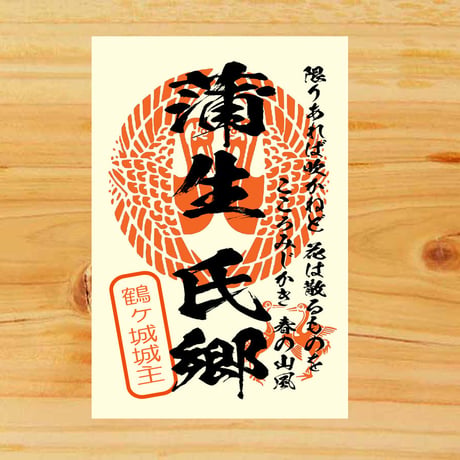 限りあれば吹かねど 花は散るものを
こころみじかき 春の山風
蒲生氏郷
鶴ヶ城城主